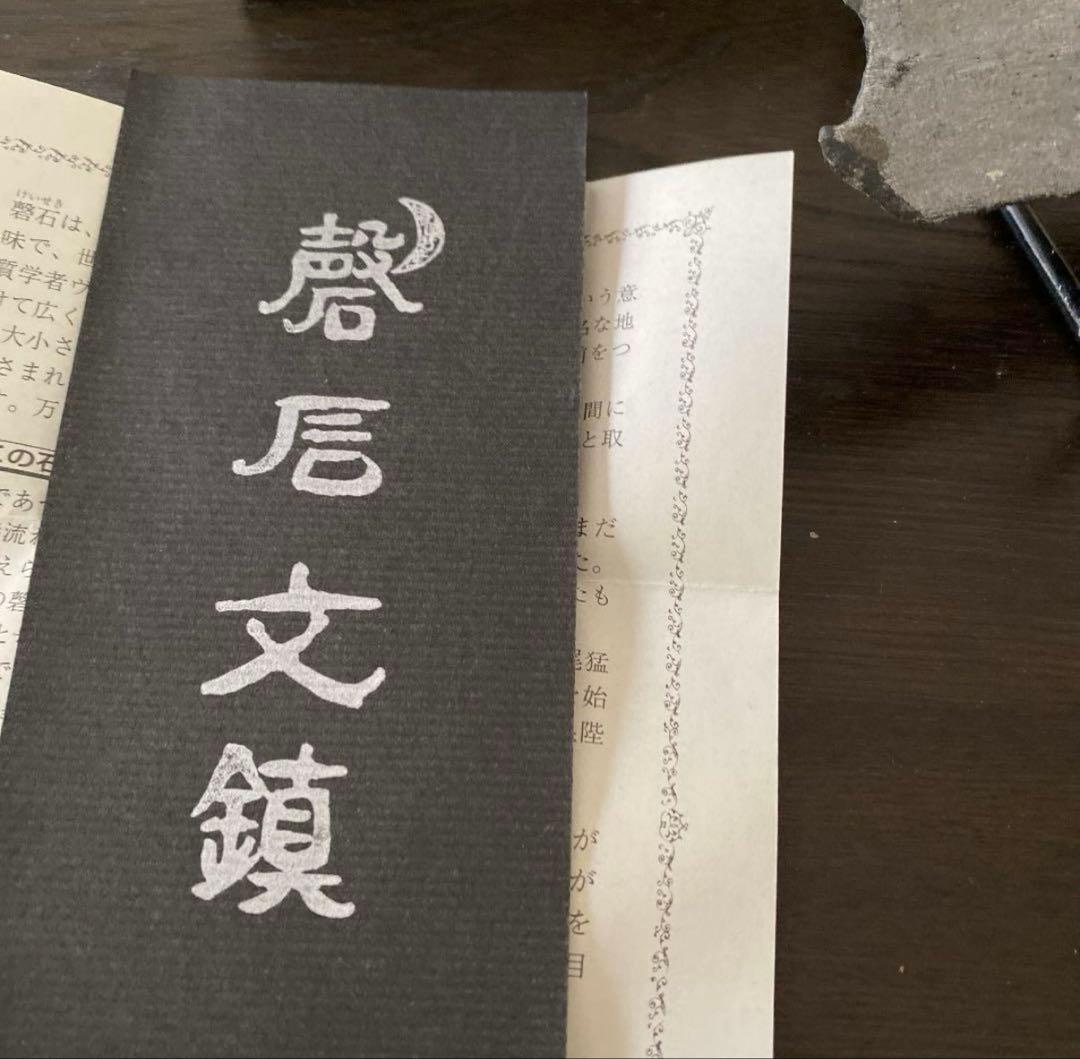 磬石文鎮
けいせき
磬石は、
味で、世
質学者ウ
けて広く
大小さ
さまれ
す。万
この石
であっ
流れ
えら
の磬
と
で
いう意
名な地
をつ
間に
と取
まだ
た。
たも
尾猛
始
陛
が
が
を
目